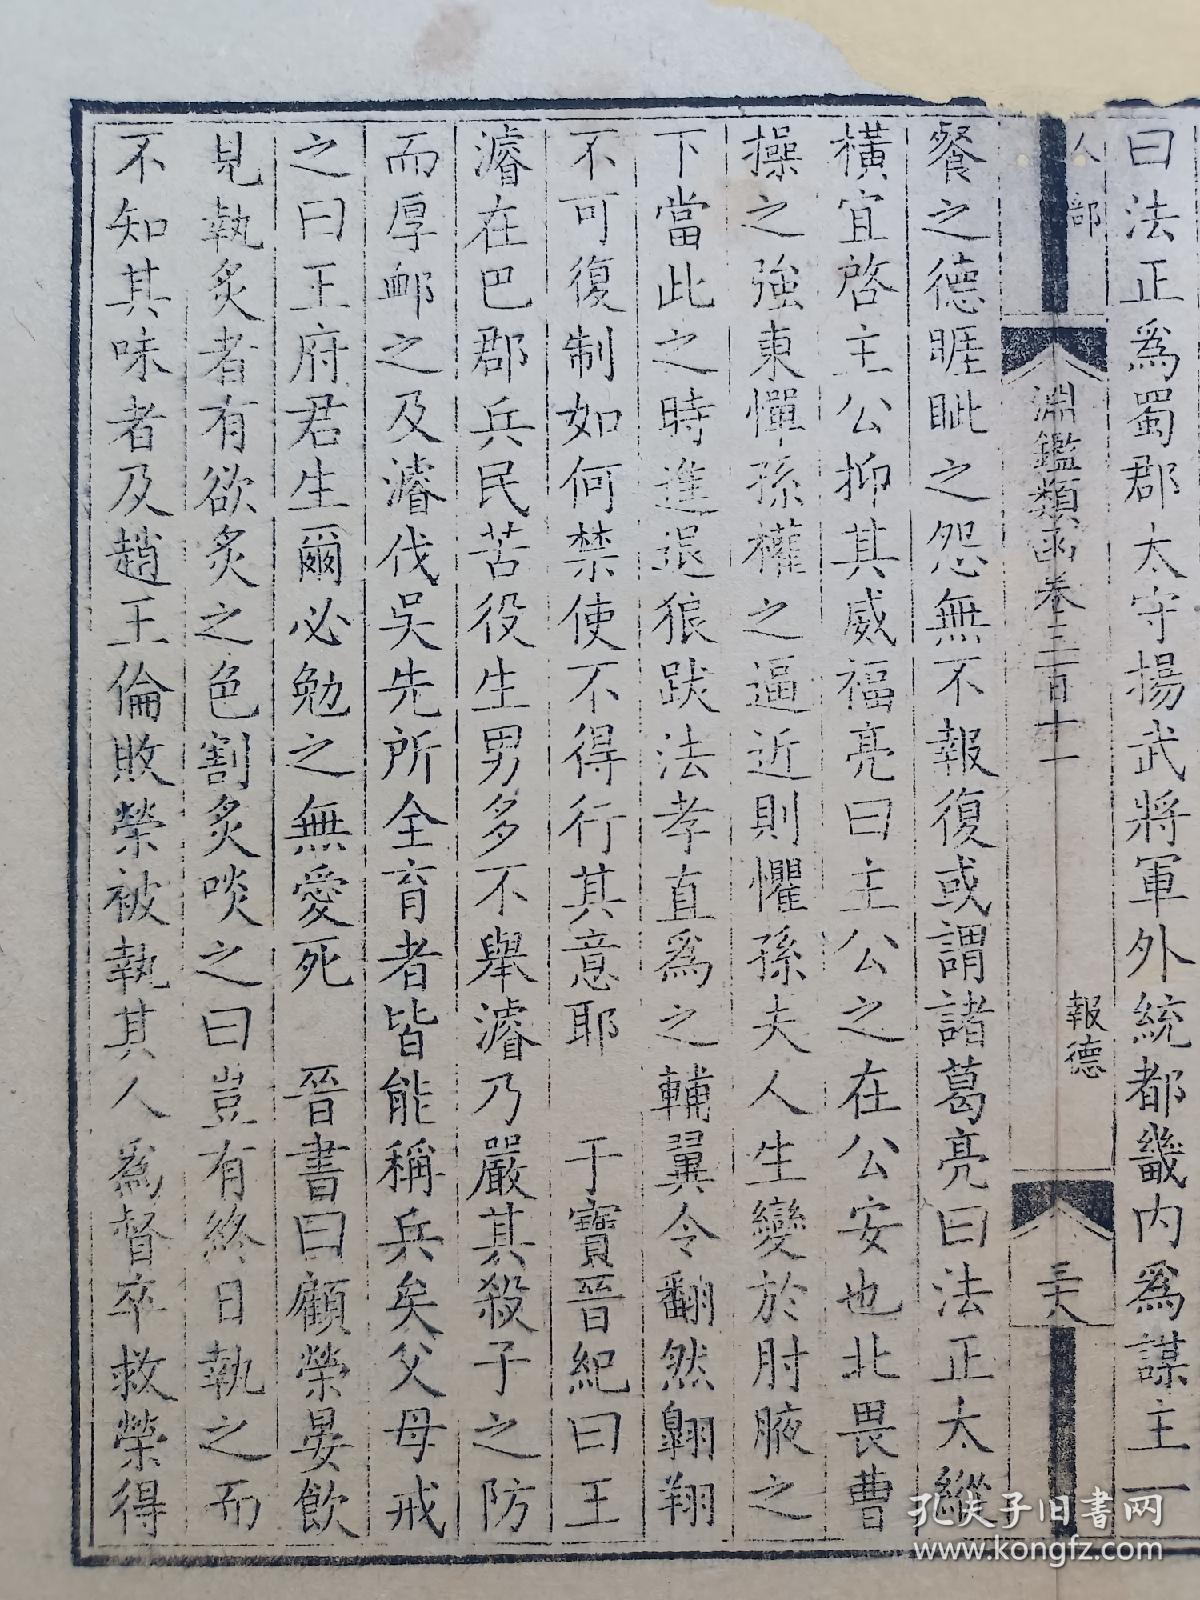 曰法正爲蜀郡太守揚武將軍外統都畿內爲謀主一
人部
淵鑑類函卷三百十一
報德
三大
餐之德睚眦之怨無不報復或謂諸葛亮曰法正太縱
橫宜啓主公抑其威福亮曰主公之在公安也北畏曹
操之強東憚孫權之逼近則懼孫夫人生變於肘腋之
下當此之時進退狼跋法孝直爲之輔翼令翻然翱翔
不可復制如何禁使不得行其意耶　于寶晉紀曰王
濬在巴郡兵民苦役生男多不舉濬乃嚴其殺子之防
而厚卹之及濬伐吳先所全育者皆能稱兵矣父母戒
之曰王府君生爾必勉之無愛死　晉書曰顧榮晏飲
見執炙者有欲炙之色割炙啖之曰豈有終日執之而
不知其味者及趙王倫敗榮被執其人爲督卒救榮得
孔夫子旧书网
www.kongfz.com